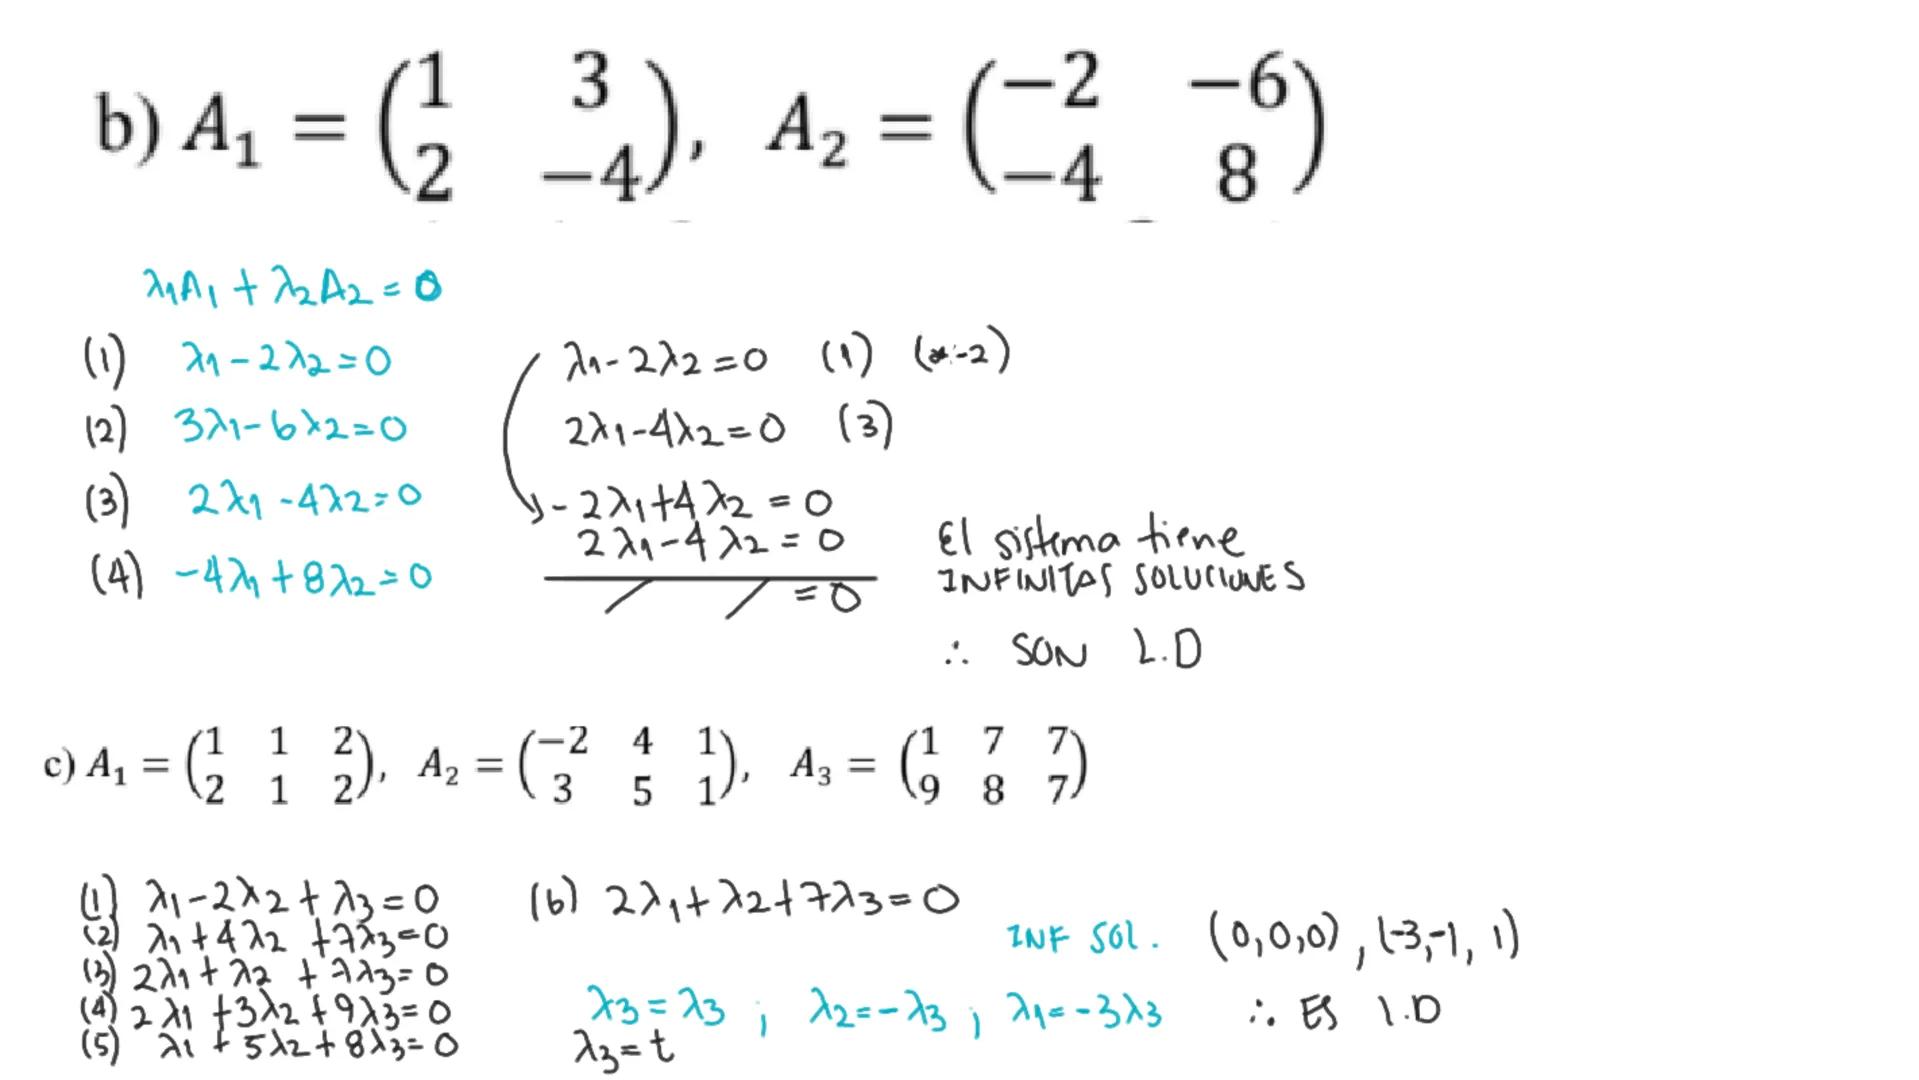 b) A₁ = (1 3; 2 −4), A₂ = (−2 −6; −4 8)
λ₁A₁ + λ₂A₂ = 0
(1) λ₁ - 2λ₂ = 0
(2) 3λ₁ - 6λ₂ = 0
(3) 2λ₁ - 4λ₂ = 0
(4) -4λ₁ + 8λ₂ = 0
λ₁ - 2λ₂ = 0 (1) (*-2)
2λ₁ - 4λ₂ = 0 (3)
- 2λ₁ + 4λ₂ = 0
2λ₁ - 4λ₂ = 0
/ / = 0
El sistema tiene
INFINITAS SOLUCIONES
∴ SON L.D
c) A₁ = (1 1 2; 2 1 2), A₂ = (−2 4 1; 3 5 1), A₃ = (1 7 7; 9 8 7)
(1) λ₁ - 2λ₂ + λ₃ = 0
(2) λ₁ + 4λ₂ + 7λ₃ = 0
(3) 2λ₁ + λ₂ + 7λ₃ = 0
(4) 2λ₁ + 3λ₂ + 9λ₃ = 0
(5) λ₁ + 5λ₂ + 8λ₃ = 0
(6) 2λ₁ + λ₂ + 7λ₃ = 0
INF SOL. (0,0,0), (-3,-1, 1)
λ₃ = λ₃ ; λ₂ = -λ₃ ; λ₁ = -3λ₃
∴ ES l.D
λ₃ = t